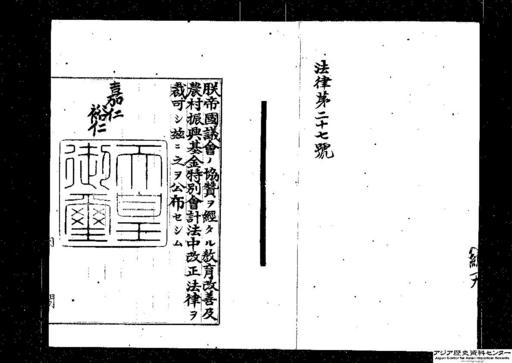 法律第二十七號
朕帝國議會ノ協贊ヲ經タル教育改善及
農村振興基金特別會計法中改正法律ヲ
裁可シ茲ニ之ヲ公布セシム
嘉仁
裕仁
天皇
御璽
アジア歴史資料センター
Japan Center for Asian Historical Records